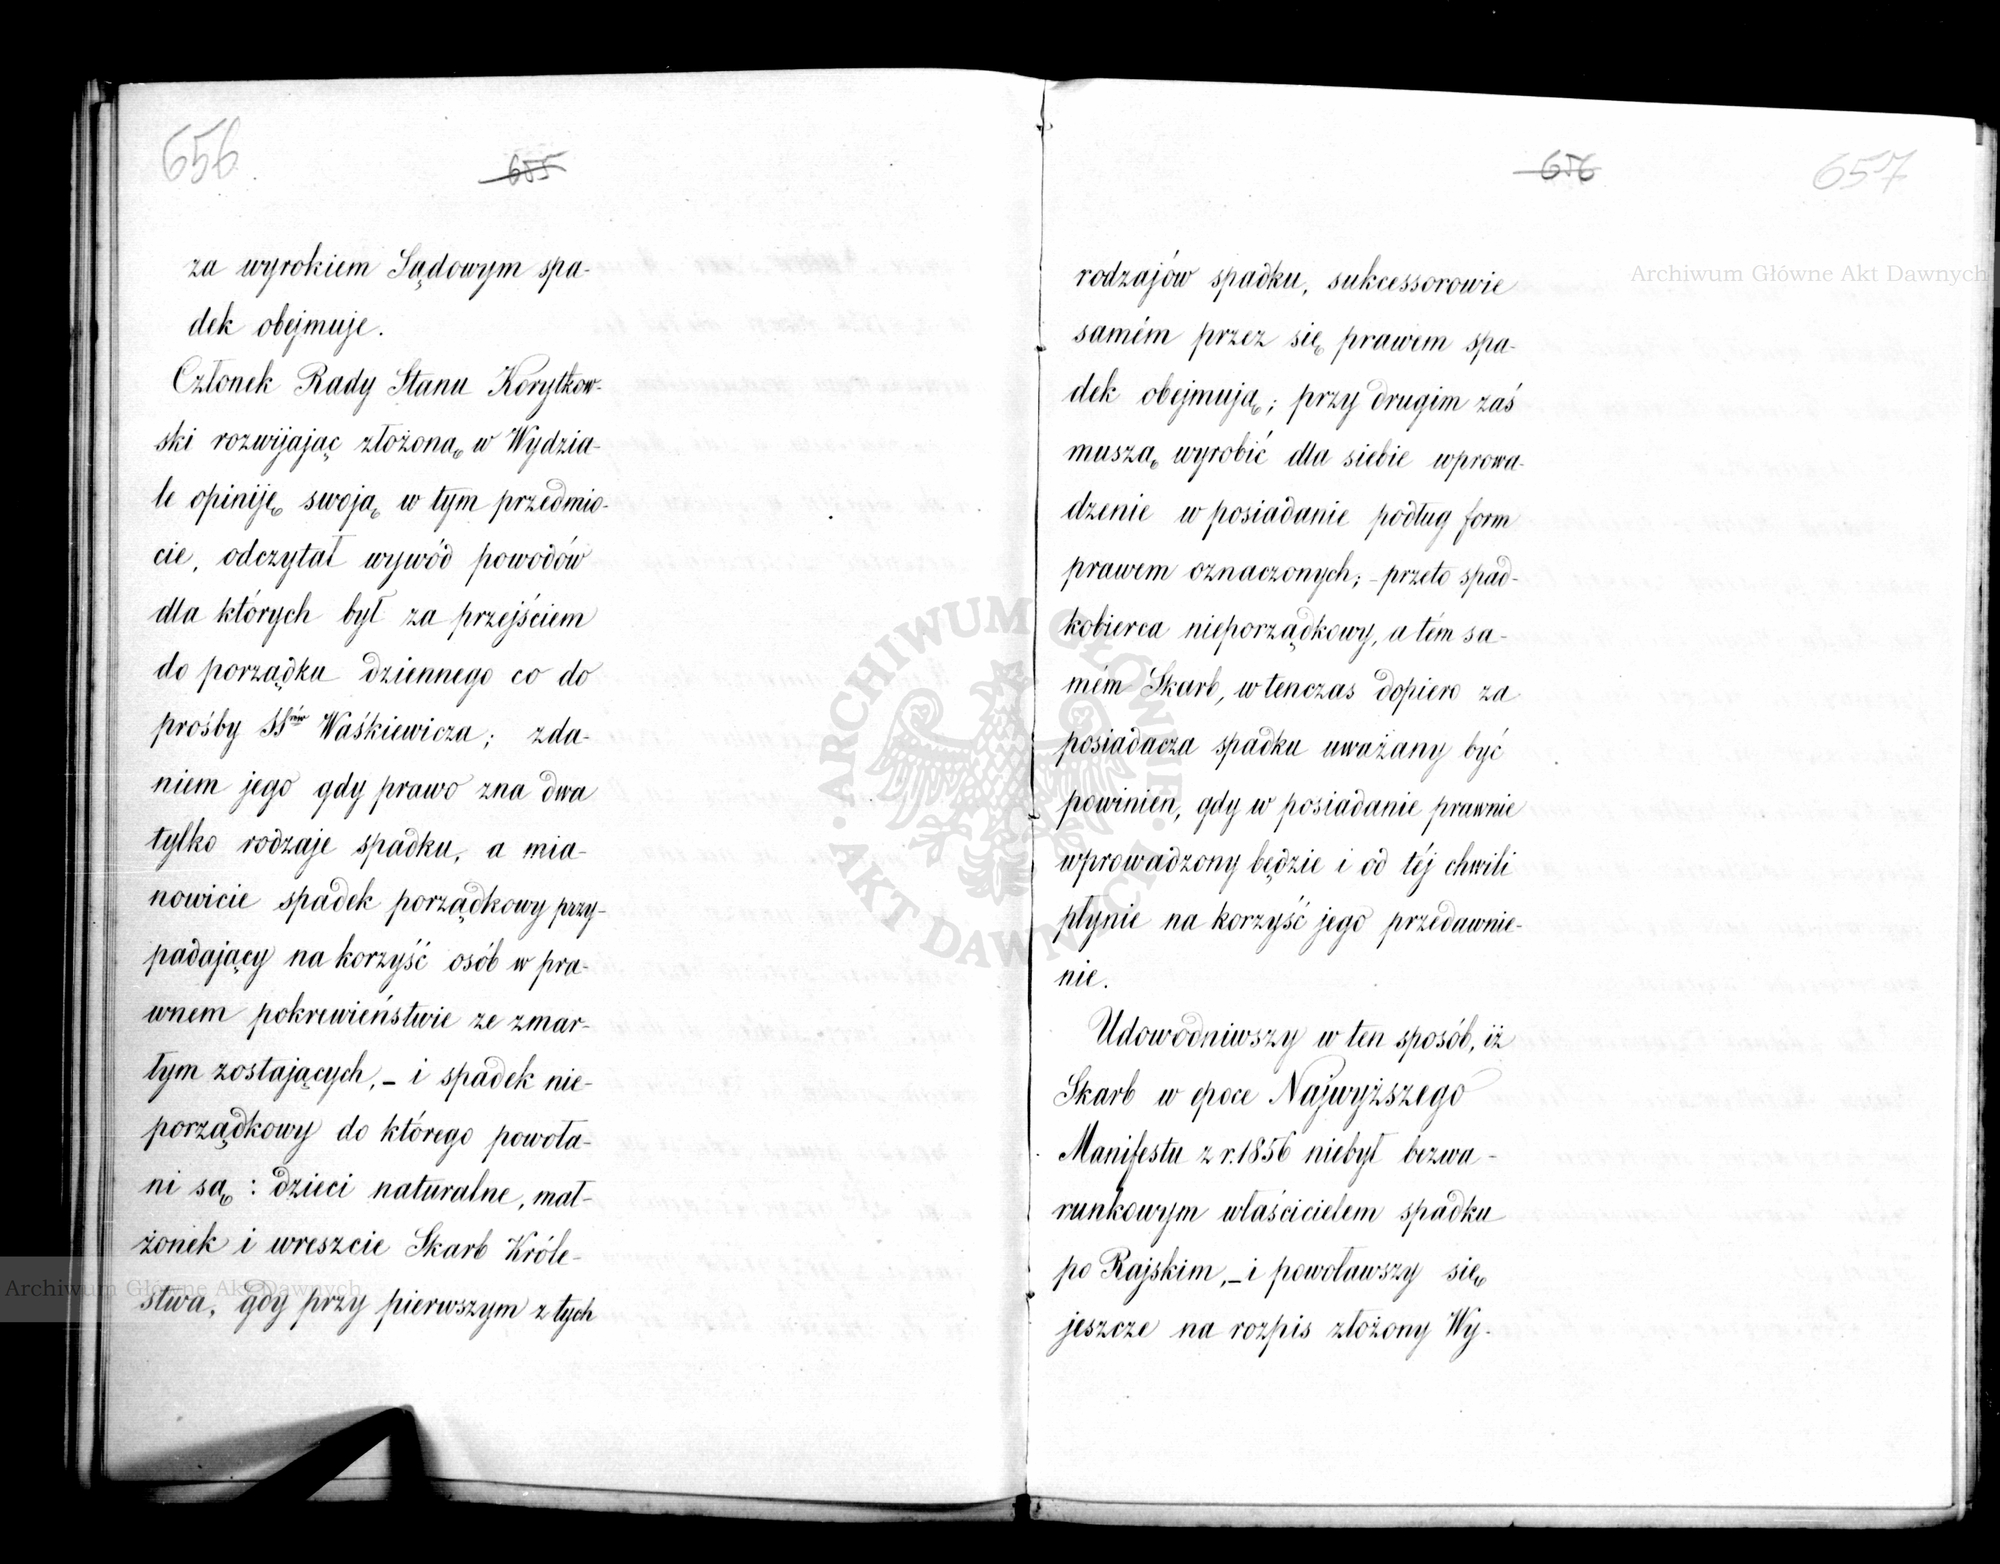 656
655
za wyrokiem Sądowym spa-
dek obejmuje.
Członek Rady Stanu Korytkow-
ski rozwijając złożoną w Wydzia-
le opiniję swoją w tym przedmio-
cie, odczytał wywód powodów
dla których był za przejściem
do porządku dziennego co do
prośby SSrów Waśkiewicza; zda-
niem jego gdy prawo zna dwa
tylko rodzaje spadku, a mia-
nowicie spadek porządkowy przy-
padający na korzyść osób w pra-
wnem pokrewieństwie ze zmar-
łym zostających, – i spadek nie-
porządkowy do którego powoła-
ni są: dzieci naturalne, mał-
żonek i wreszcie Skarb Króle-
stwa, gdy przy pierwszym z tych
656
657
rodzajów spadku, sukcessorowie
samém przez się prawem spa-
dek obejmują; przy drugim zaś
muszą wyrobić dla siebie wprowa-
dzenie w posiadanie podług form
prawem oznaczonych; – przeto spad-
kobierca nieporządkowy, a tém sa-
mém Skarb, wtenczas dopiero za
posiadacza spadku uważany być
powinien, gdy w posiadanie prawnie
wprowadzony będzie i od téj chwili
płynie na korzyść jego przedawnie-
nie.
Udowodniwszy w ten sposób, iż
Skarb w epoce Najwyższego
Manifestu z r. 1856 niebył bezwa-
runkowym właścicielem spadku
po Rajskim, – i powoławszy się
jeszcze na rozpis złożony Wy-
Archiwum Główne Akt Dawnych
Archiwum Główne Akt Dawnych
ARCHIWUM GŁÓWNE
AKT DAWNYCH